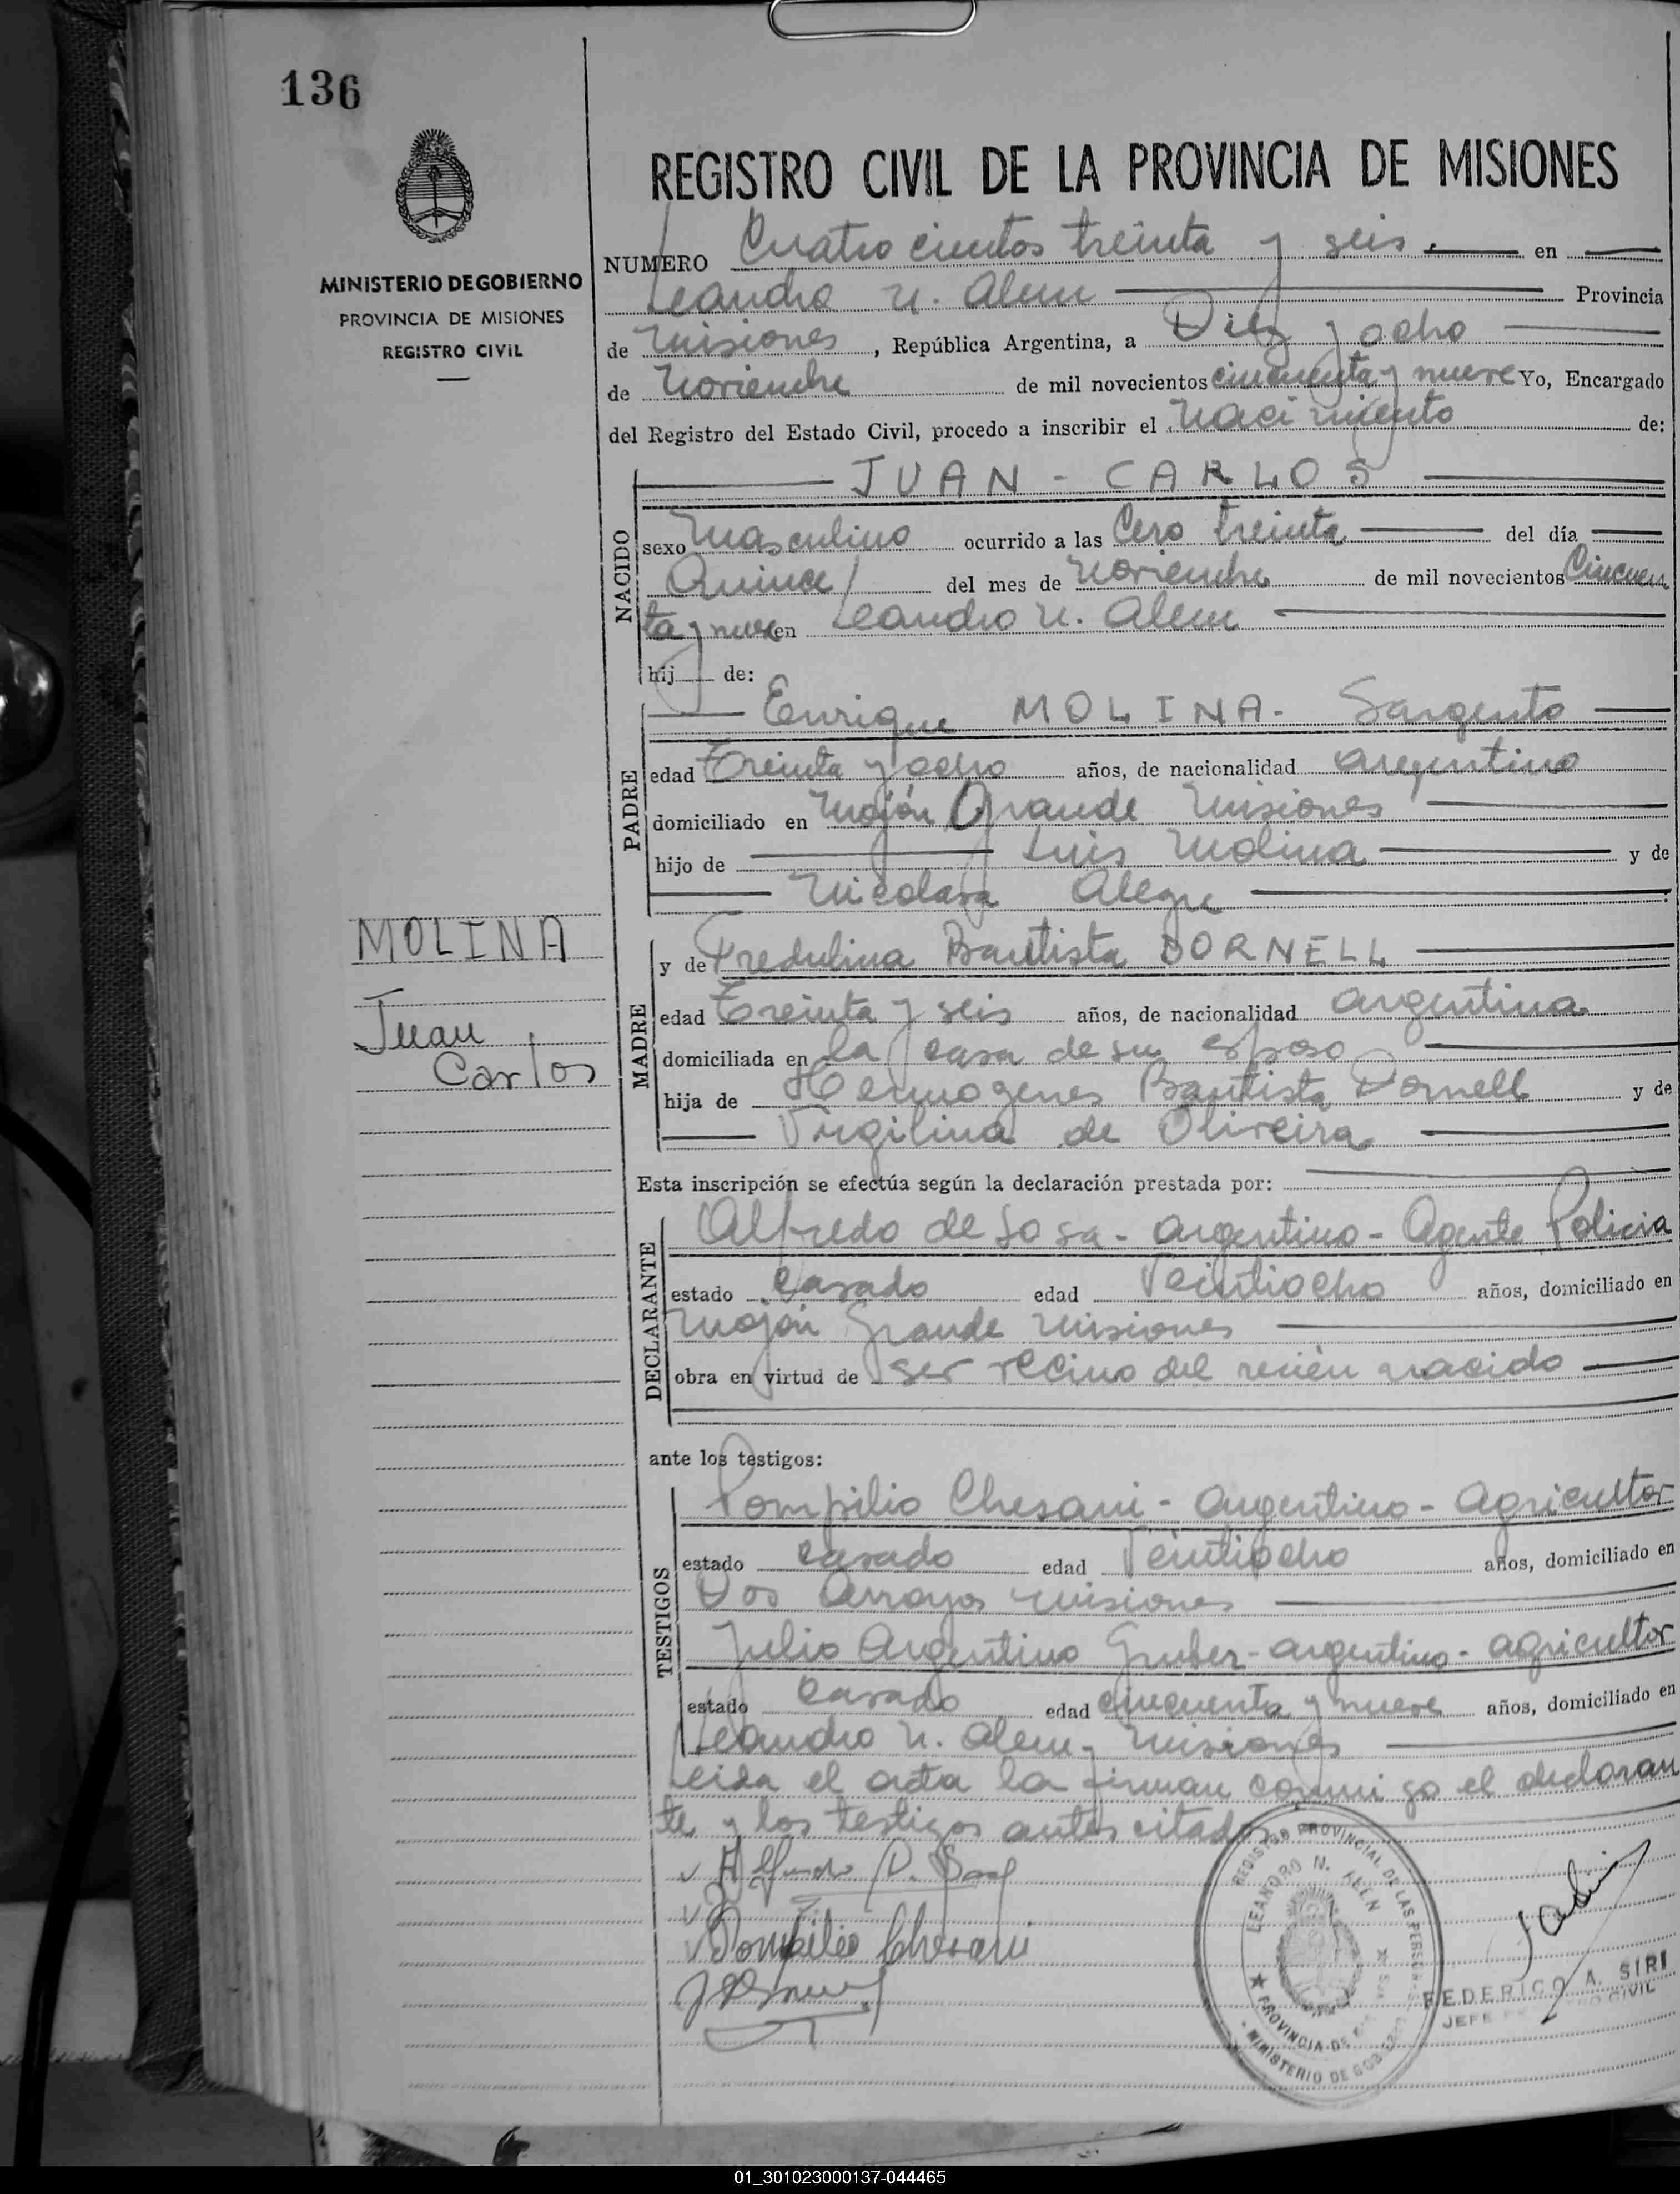 136
MINISTERIO DE GOBIERNO
PROVINCIA DE MISIONES
REGISTRO CIVIL
REGISTRO CIVIL DE LA PROVINCIA DE MISIONES
NUMERO Cuatro cientos treinta y seis. en
Leandro N. Alem Provincia
de Misiones, República Argentina, a Diez y ocho
de Noviembre de mil novecientos cincuenta y nueve Yo, Encargado
del Registro del Estado Civil, procedo a inscribir el Nacimiento de:
NACIDO
JUAN - CARLOS
sexo Masculino ocurrido a las Cero treinta del día
Quince del mes de Noviembre de mil novecientos Cincuen
ta y nueve en Leandro N. Alem
hij de:
PADRE
Enrique MOLINA - Sargento
edad Treinta y ocho años, de nacionalidad argentino
domiciliado en Mojón Grande Misiones
hijo de Luis Molina y de
Nicolasa Alegre
MOLINA
Juan
Carlos
MADRE
y de Fredulina Bautista DORNELL
edad Treinta y seis años, de nacionalidad argentina
domiciliada en la casa de su esposo
hija de Hermogenes Bautista Dornell y de
Virgilina de Oliveira
Esta inscripción se efectúa según la declaración prestada por:
DECLARANTE
Alfredo de Sosa - argentino - Agente Policia
estado Casado edad Veintiocho años, domiciliado en
Mojón Grande Misiones
obra en virtud de ser vecino del recién nacido
ante los testigos:
TESTIGOS
Pompilio Chesani - argentino - Agricultor
estado casado edad Veintiocho años, domiciliado en
Dos Arroyos Misiones
Julio Argentino Gruber - argentino - agricultor
estado Casado edad cincuenta y nueve años, domiciliado en
Leandro N. Alem, Misiones
Leida el acta la firman conmigo el declaran
te y los testigos antes citados
Pompilio Chesani
REGISTRO PROVINCIAL DE LAS PERSONAS
LEANDRO N. ALEN
PROVINCIA DE
MINISTERIO DE GOBIERNO
FEDERICO A. SIRI
JEFE CIVIL
01_301023000137-044465